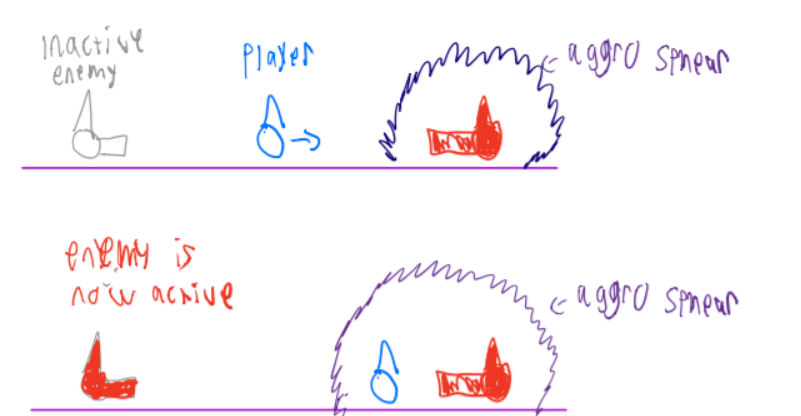 Inactive
enemy
Player
aggro sphear
enemy is
now active
aggro sphear